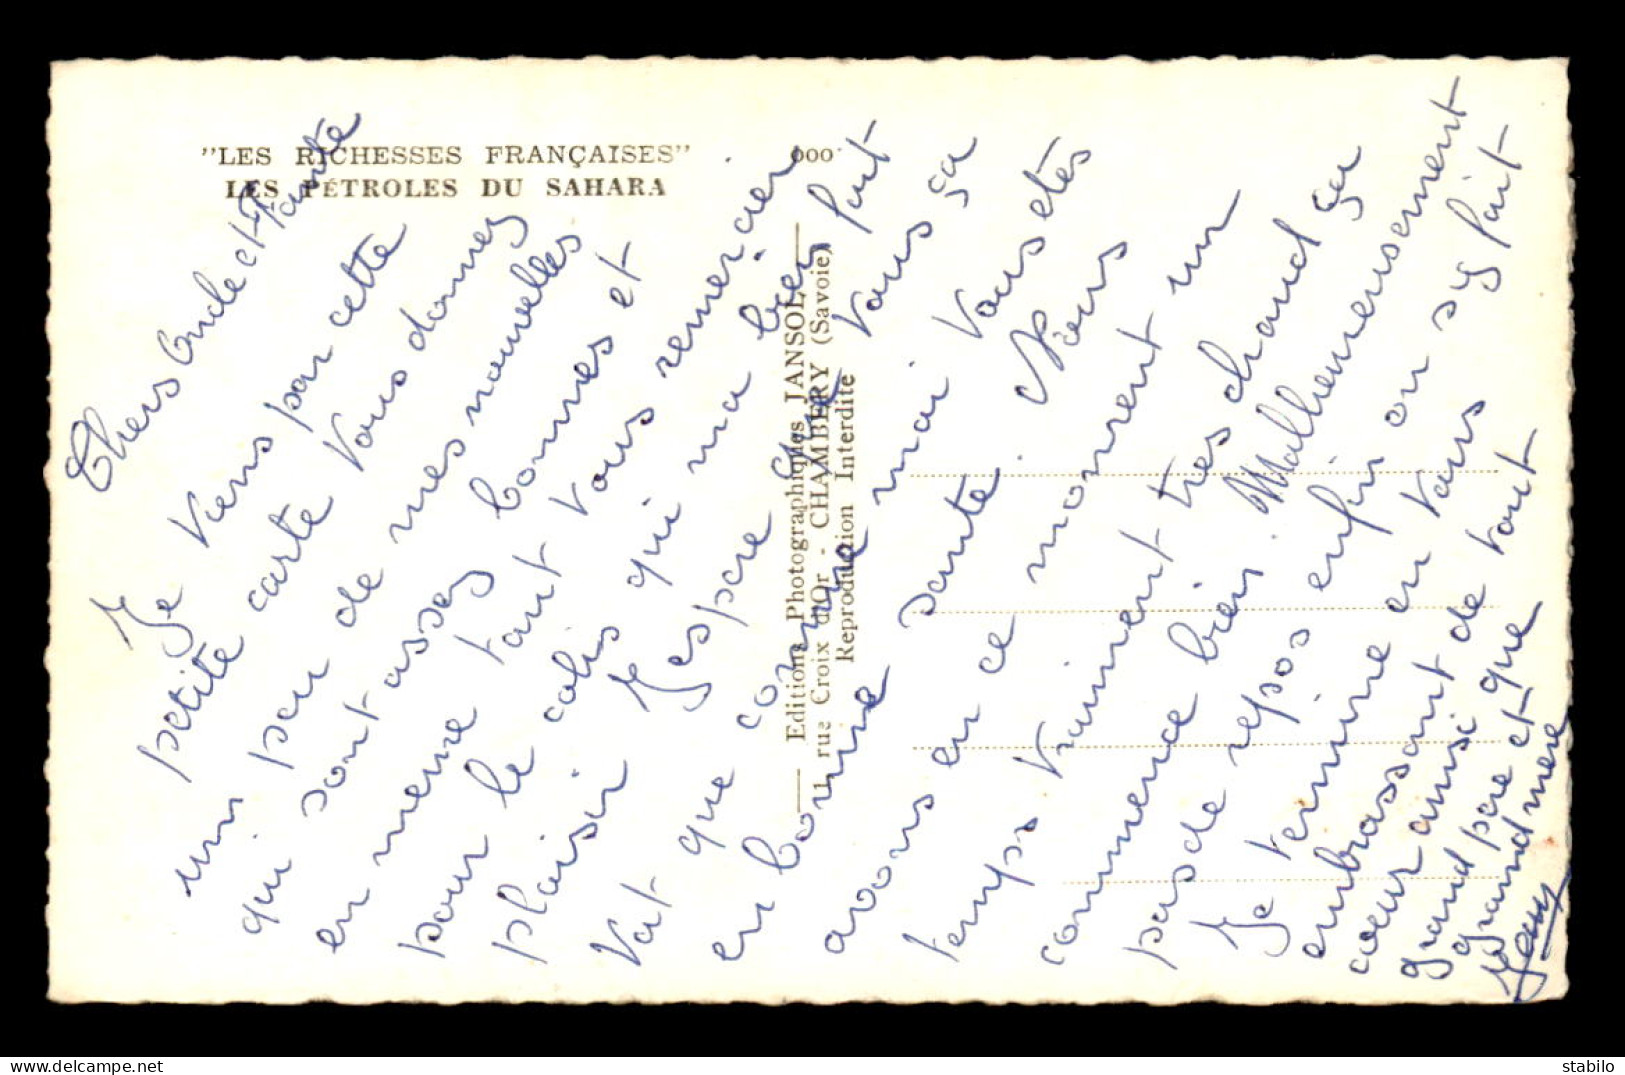 "LES RICHESSES FRANÇAISES"
LES PÉTROLES DU SAHARA
000
Editions Photographiques JANSOL
11 rue Croix d'Or - CHAMBÉRY (Savoie)
Reproduction Interdite
Chers Oncle et Tante
Je viens par cette
petite carte vous donnez
un peu de mes nouvelles
qui sont assez bonnes et
en meme tant vous remercier
pour le colis qui ma bien fait
plaisir Jespere que vous sa
vat que comme moi vous etes
en bonne santé. Nous
avons en ce moment un
temps vraiment tres chaud ça
commence bien. Malheureusement
pas de repos enfin on sy fait
Je termine en vous
embrassant de tout
coeur ainsi que
grand pere et
grand mere
delcampe.net
stabilo